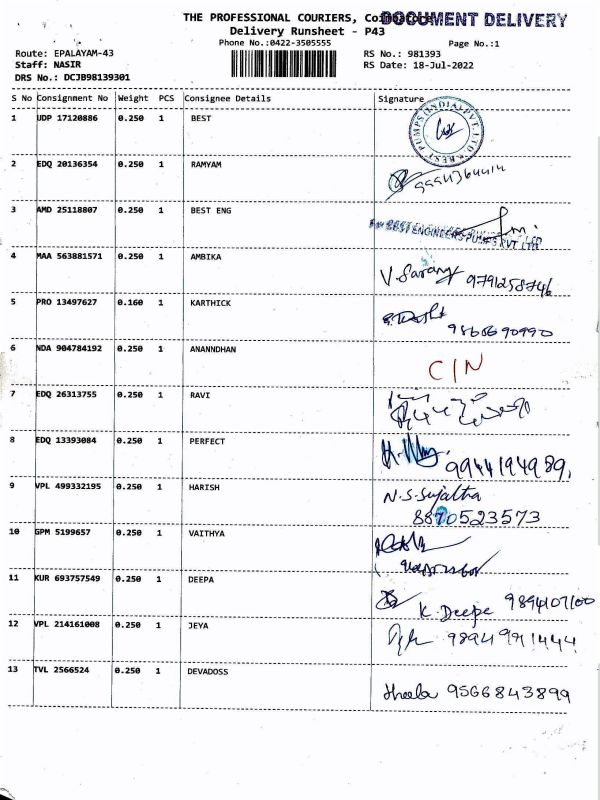 THE PROFESSIONAL COURIERS, Coimbatore
DOCUMENT DELIVERY
Delivery Runsheet - P43
Phone No.:0422-3505555
Page No.:1
Route: EPALAYAM-43
RS No.: 981393
Staff: NASIR
RS Date: 18-Jul-2022
DRS No.: DCJB98139301
S No Consignment No Weight PCS Consignee Details Signature
1 UDP 17120886 0.250 1 BEST
BEST PUMPS (INDIA) PVT. LTD
2 EDQ 20136354 0.250 1 RAMYAM
3 AMD 25118807 0.250 1 BEST ENG
For BEST ENGINEERS PUMPS PVT LTD
4 MAA 563881571 0.250 1 AMBIKA
V. Sarang 9791258746
5 PRO 13497627 0.160 1 KARTHICK
9868690990
6 NDA 904784192 0.250 1 ANANNDHAN
C/N
7 EDQ 26313755 0.250 1 RAVI
8 EDQ 13393084 0.250 1 PERFECT
9944194989,
9 VPL 499332195 0.250 1 HARISH
N.S-Sujatha
8870523573
10 GPM 5199657 0.250 1 VAITHYA
11 KUR 693757549 0.250 1 DEEPA
K. Deepe 9894107100
12 VPL 214161008 0.250 1 JEYA
9894991444
13 TVL 2566524 0.250 1 DEVADOSS
Sheela 9566843899